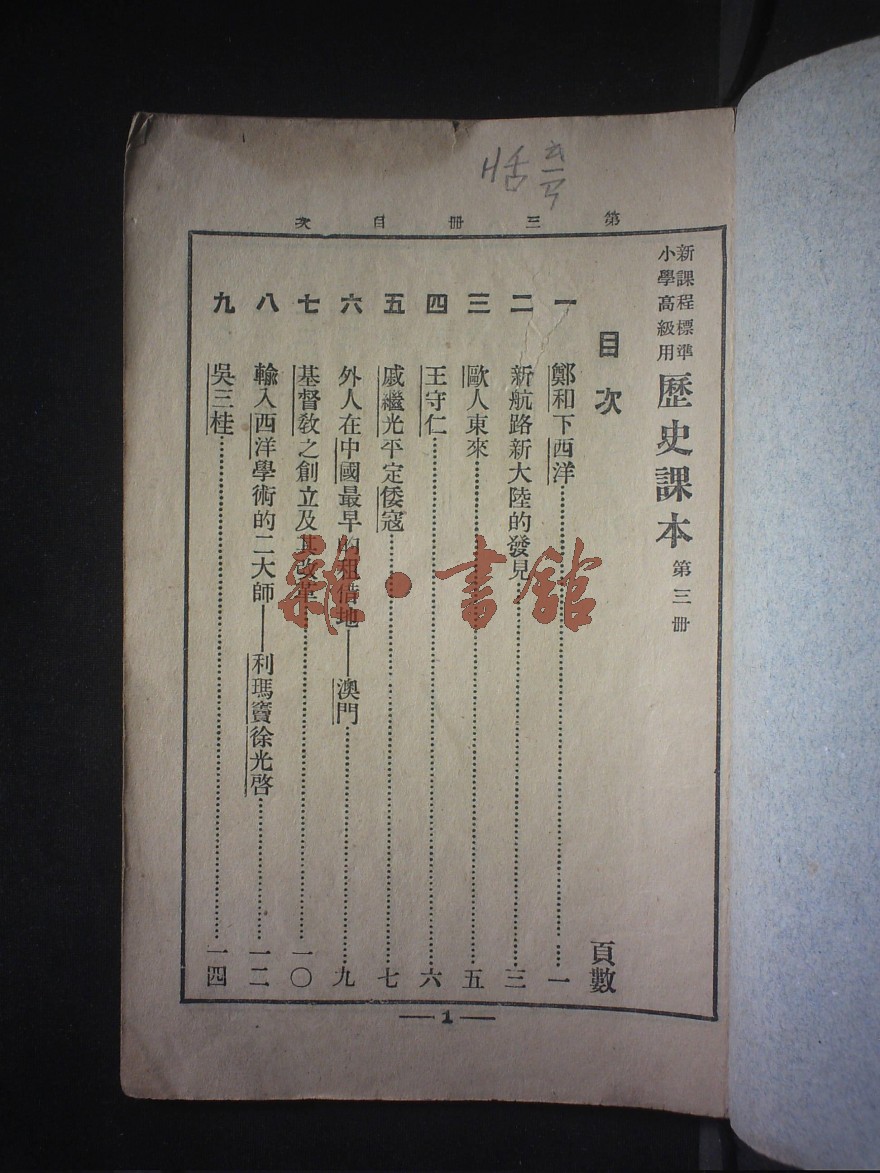 第三冊目次
新課程標準
小學高級用
歷史課本 第三冊
目次 頁數
一 鄭和下西洋 一
二 新航路新大陸的發見 三
三 歐人東來 五
四 王守仁 六
五 戚繼光平定倭寇 七
六 外人在中國最早的租借地——澳門 九
七 基督教之創立及其改革 一〇
八 輸入西洋學術的二大師——利瑪竇徐光啓 一二
九 吳三桂 一四
1
雜·書館